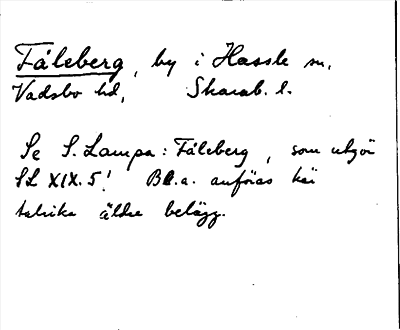 Fåleberg, by i Hassle sn,
Vadsbo hd, Skarab. l.
Se S. Lampa: Fåleberg, som utgör
SL XIX.5! Bl.a. anföras här
talrika äldre belägg.